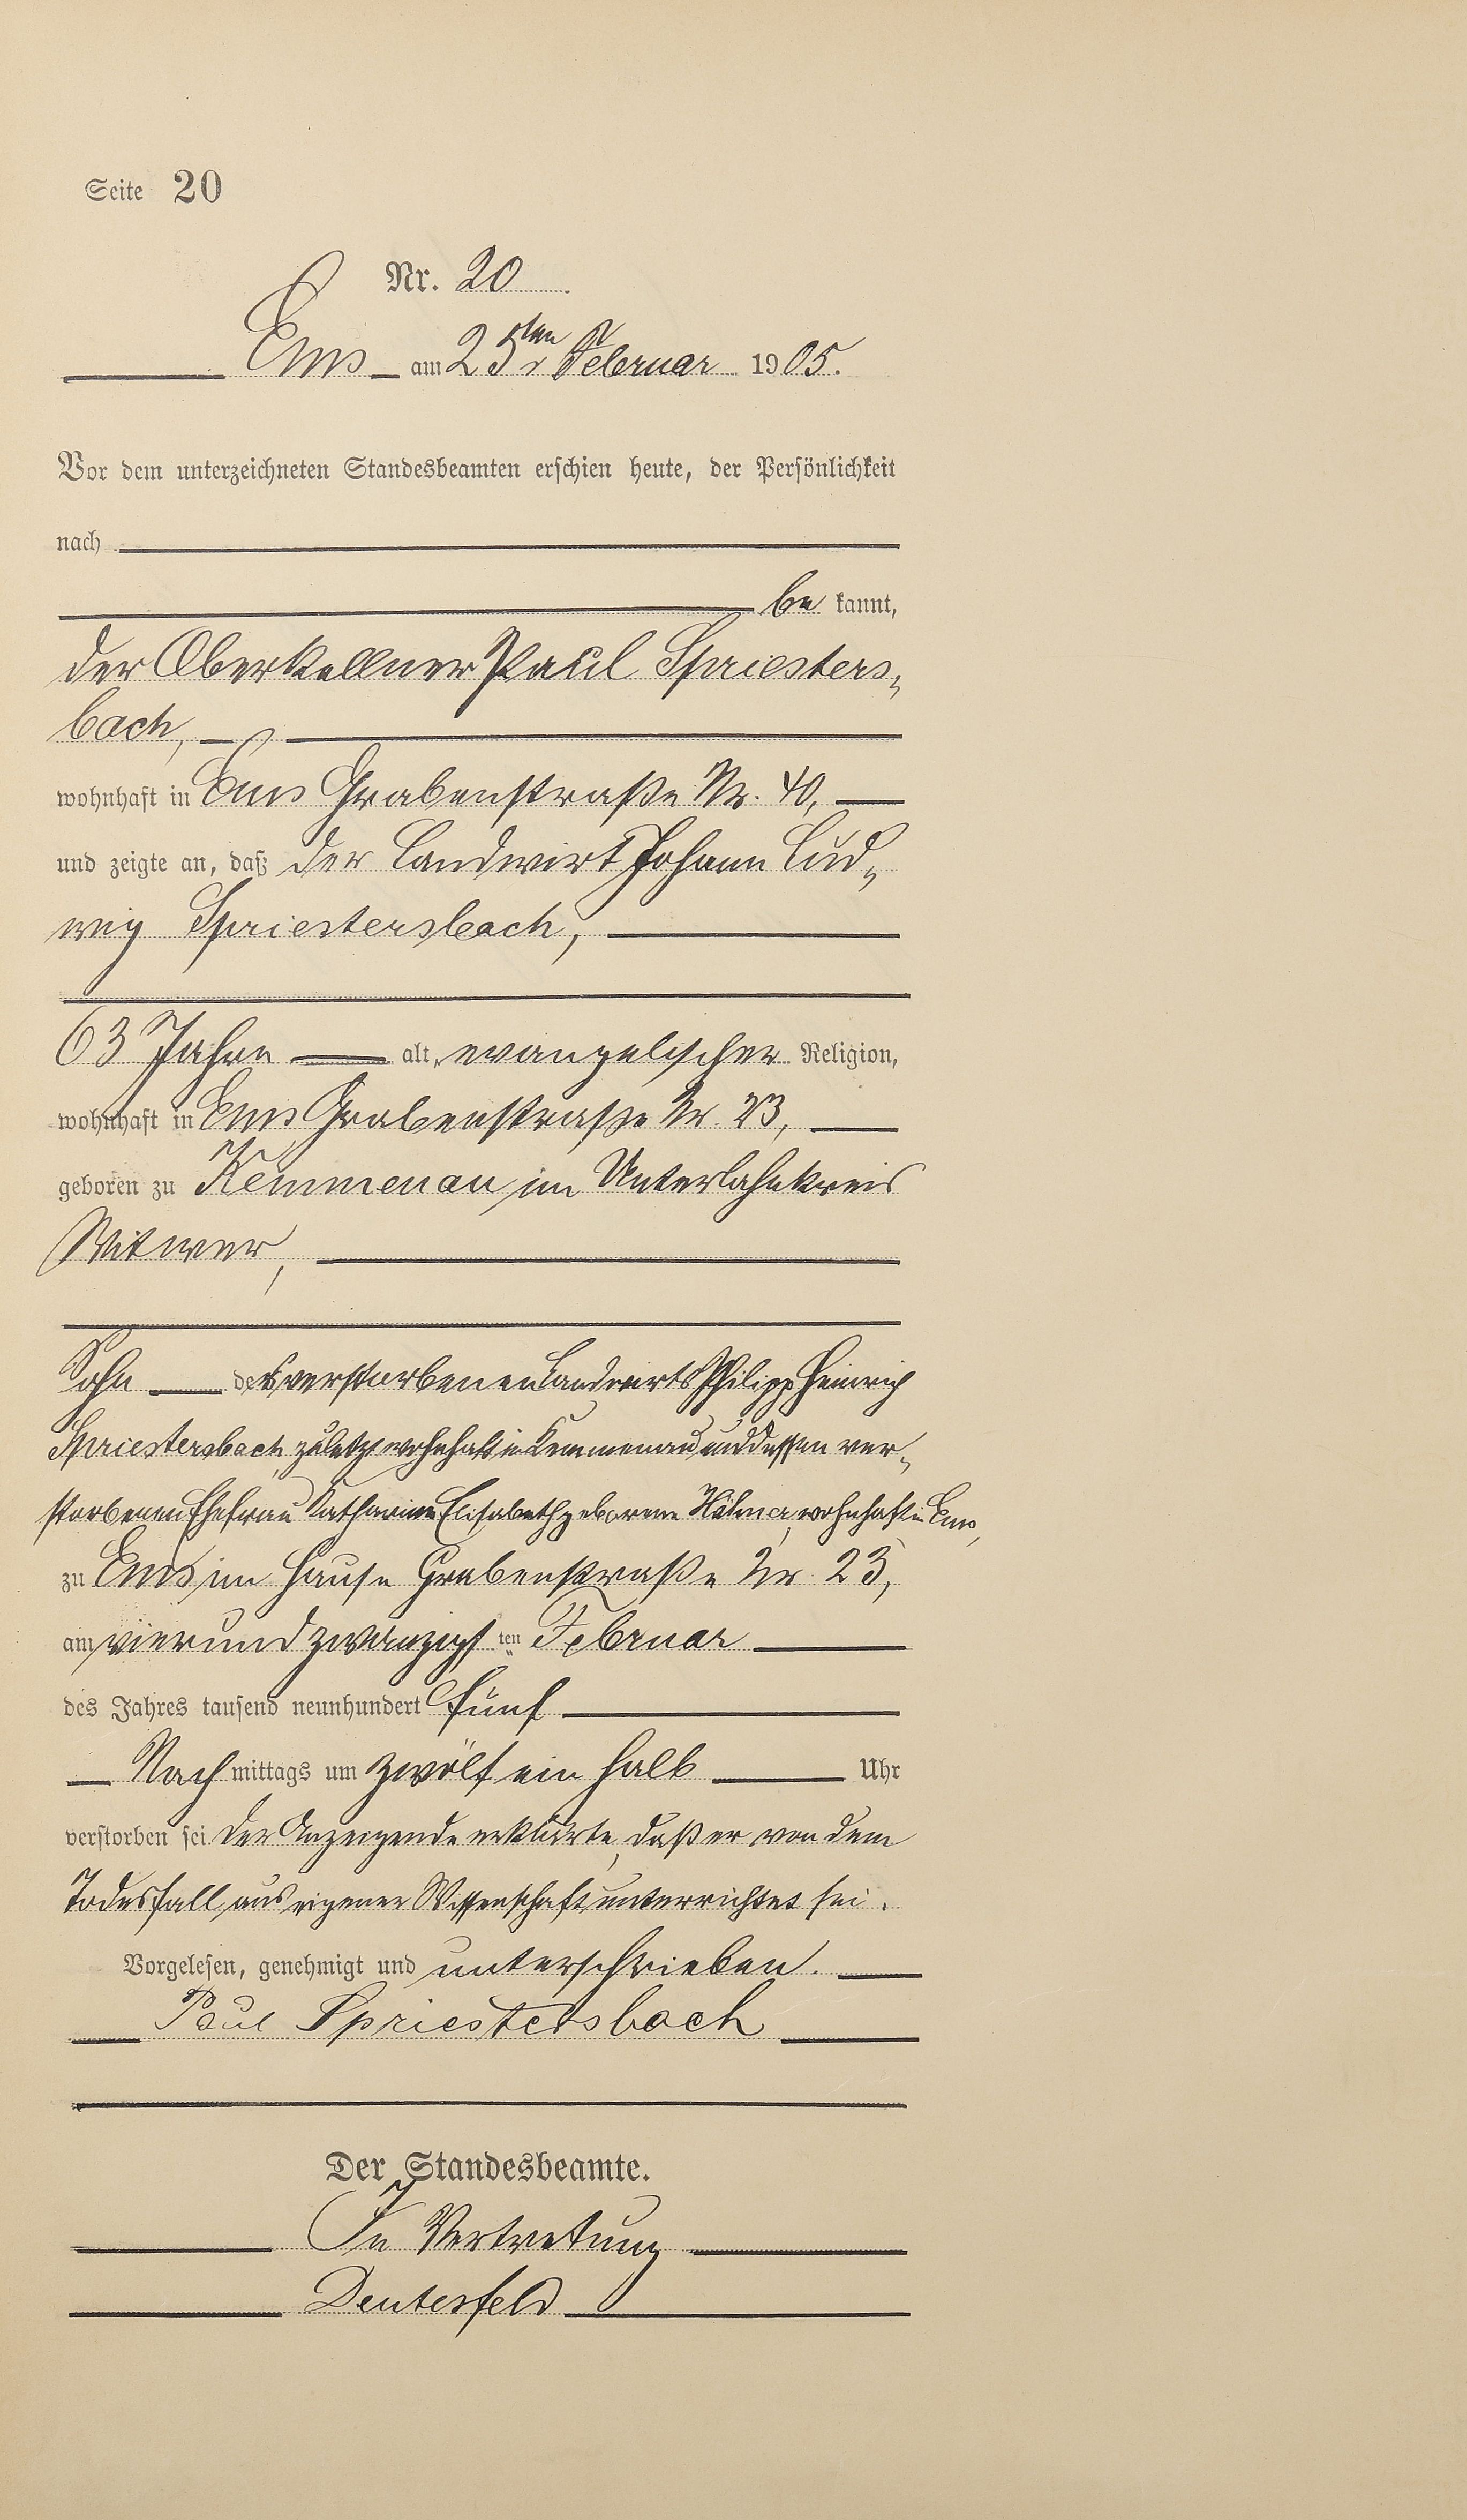 Seite 20
Nr. 20
Ems am 25ten Februar 1905.
Vor dem unterzeichneten Standesbeamten erschien heute, der Persönlichkeit
nach
be kannt,
der Oberkellner Paul Spriesters„
bach,
wohnhaft in Ems Grabenstraße Nr. 40,
und zeigte an, daß der Landwirt Johann Lud„
wig Spriestersbach,
63 Jahre alt, evangelischer Religion,
wohnhaft in Ems Grabenstraße Nr. 23,
geboren zu Kemmenau im Unterlahnkreis
Witwer,
Sohn des verstorbenen Landwirts Philipp Heinrich
Spriestersbach zuletzt wohnhaft in Kemmenau und dessen ver„
storbenen Ehefrau Katharine Elisabeth geborene wohnhaft in Ems,
zu Ems im Hause Grabenstraße Nr. 23,
am vierundzwanzigs ten Februar
des Jahres tausend neunhundert fünf
Nach mittags um zwölf ein halb Uhr
verstorben sei. Der Anzeigende erklärte, daß er von dem
Todesfall aus eigener Wissenschaft unterrichtet sei.
Vorgelesen, genehmigt und unterschrieben.
Paul Spriestersbach
Der Standesbeamte.
In Vertretung
Deutesfeld